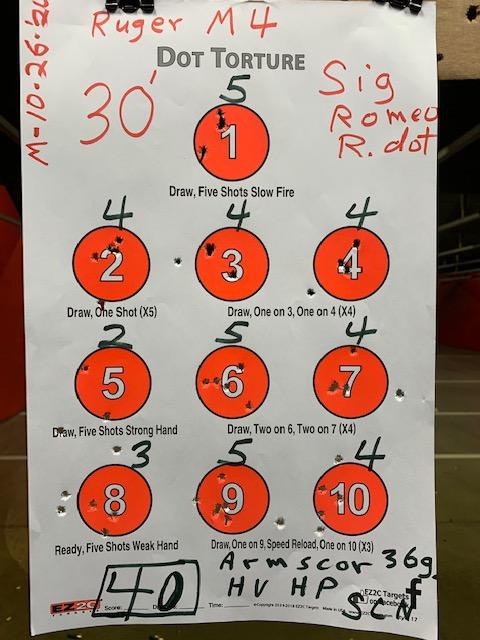 Ruger M4
M-10-26-20
DOT TORTURE
30'
Sig
Romeo
R. dot
5
1
Draw, Five Shots Slow Fire
4 4 4
2 3 4
Draw, One Shot (X5) Draw, One on 3, One on 4 (X4)
2 5 4
5 6 7
Draw, Five Shots Strong Hand Draw, Two on 6, Two on 7 (X4)
3 5 4
8 9 10
Ready, Five Shots Weak Hand Draw, One on 9, Speed Reload, One on 10 (X3)
Armscor 36g
HV HP
40
EZ2C Score: Time: EZ2C Targets
on Facebook